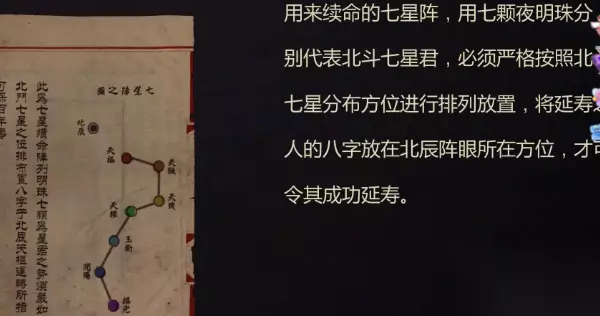 用来续命的七星阵，用七颗夜明珠分
别代表北斗七星君，必须严格按照北
七星分布方位进行排列放置，将延寿
人的八字放在北辰阵眼所在方位，才可
令其成功延寿。
七星陣之圖
北辰
天樞
天璇
天璣
天權
玉衡
開陽
搖光
此爲七星續命陣列明珠七顆爲星君之身須嚴如
北鬥七星之位排布置八字于北辰天樞運時所指
可保百年壽